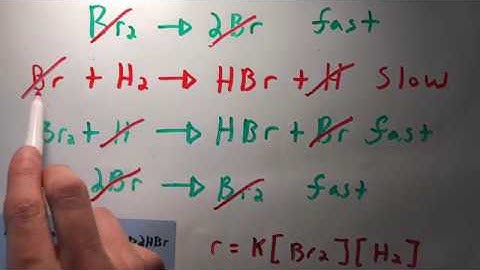 Br₂ → 2Br fast
Br + H₂ → HBr + H Slow
Br₂ + H → HBr + Br fast
2Br → Br₂ fast
2HBr
r = K[Br₂][H₂]